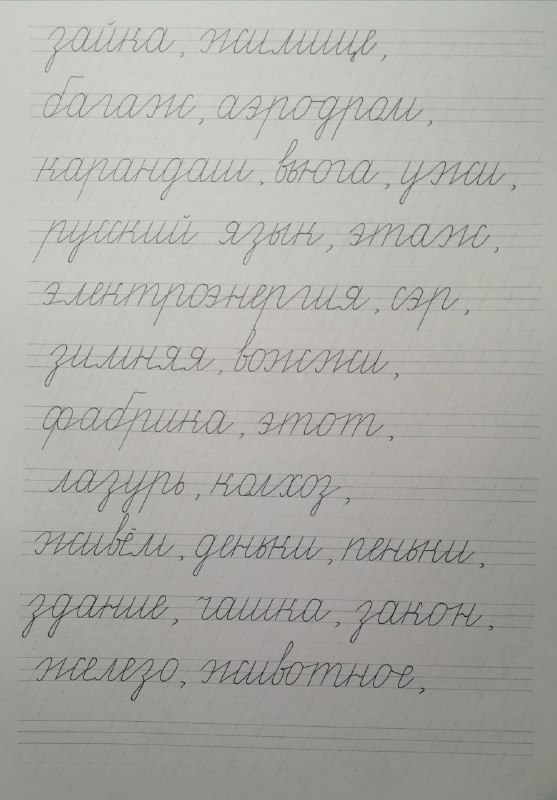 зайка, жилище,
багаж, аэродром,
карандаш, вьюга, ужи,
русский язык, этаж,
электроэнергия, сэр,
зимняя, вожжи,
фабрика, этот,
лазурь, колхоз,
живём, деньки, пеньки,
здание, чашка, закон,
железо, животное,